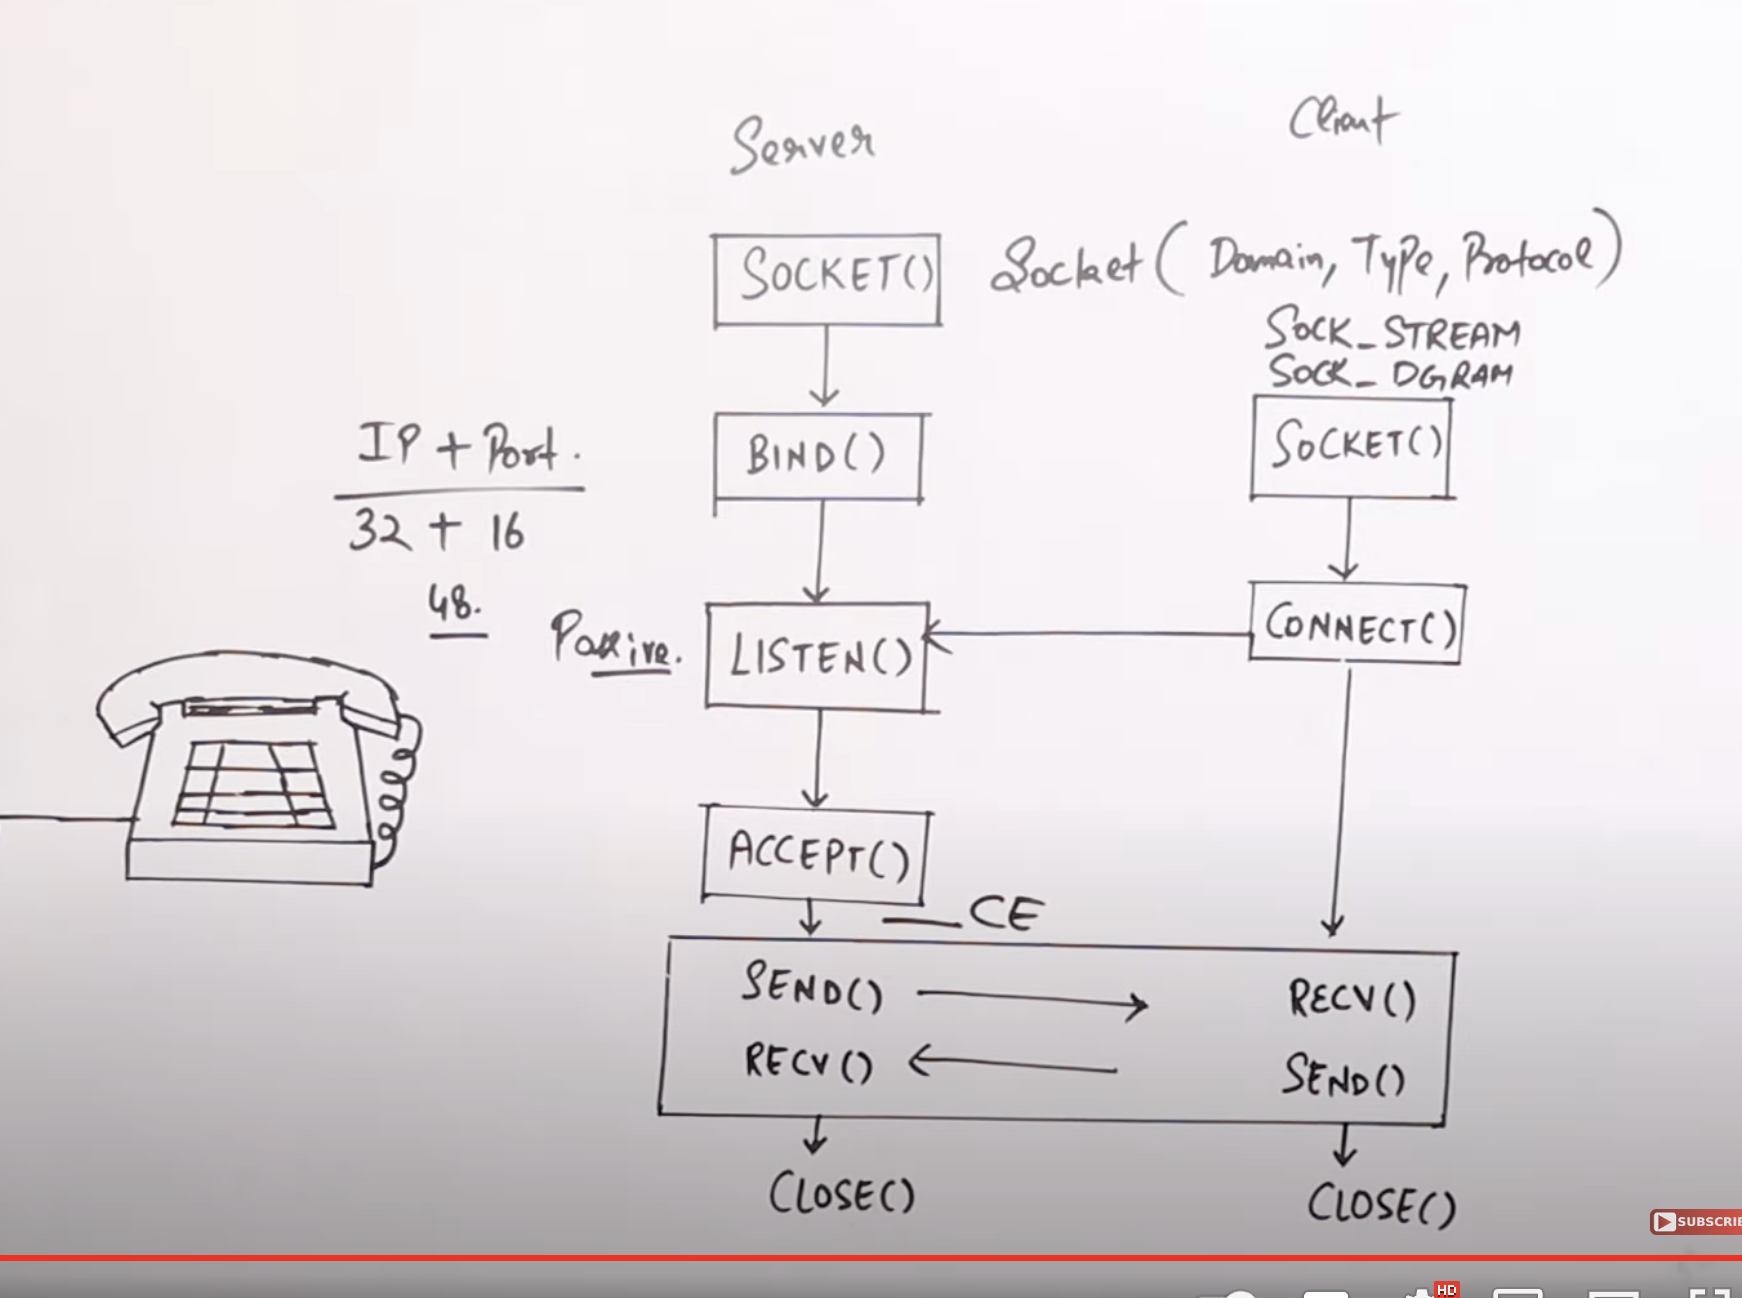 Server
Client
SOCKET()
Socket(Domain, Type, Protocol)
SOCK_STREAM
SOCK_DGRAM
SOCKET()
IP + Port.
32 + 16
48.
BIND()
Passive.
LISTEN()
CONNECT()
ACCEPT()
CE
SEND()
RECV()
RECV()
SEND()
CLOSE()
CLOSE()
SUBSCRIBE
HD